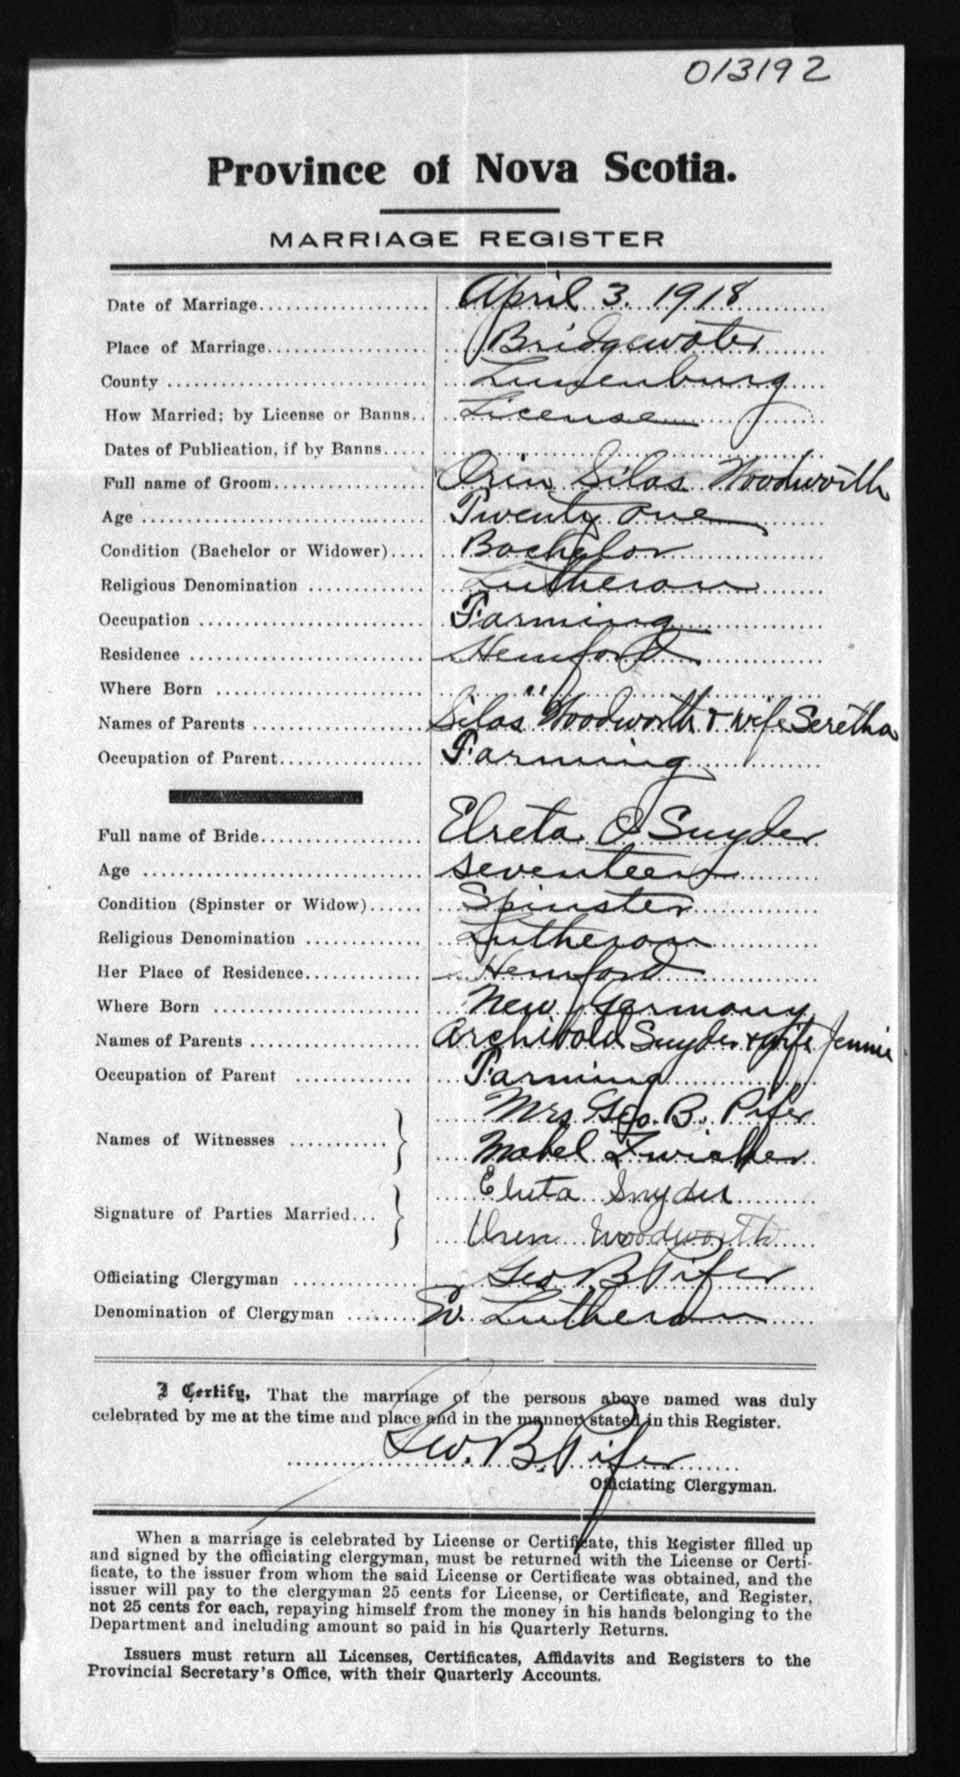 013192
Province of Nova Scotia.
MARRIAGE REGISTER
Date of Marriage.................... April 3. 1918
Place of Marriage................... Bridgewater
County ............................ Lunenburg
How Married; by License or Banns.. License
Dates of Publication, if by Banns.....
Full name of Groom.................. Orin Silas Woodworth
Age ............................... Twenty one
Condition (Bachelor or Widower).... Bachelor
Religious Denomination ............ Lutheran
Occupation ........................ Farming
Residence ......................... Hemford
Where Born ....................... " "
Names of Parents .................. Silas Woodworth & wife Seretha
Occupation of Parent................ Farming
Full name of Bride.................. Elreta O Snyder
Age .............................. seventeen
Condition (Spinster or Widow)...... Spinster
Religious Denomination ............ Lutheran
Her Place of Residence.............. Hemford
Where Born ....................... New Germany
Names of Parents .................. Archibald Snyder & wife Jennie
Occupation of Parent ............. Farming
Names of Witnesses ........... } Mrs Geo. B. Pifer
Mabel Zwicker
Signature of Parties Married... } Elreta Snyder
Oren Woodworth
Officiating Clergyman .............. Geo B Pifer
Denomination of Clergyman ........ Ev. Lutheran
I Certify, That the marriage of the persons above named was duly
celebrated by me at the time and place and in the manner stated in this Register.
Geo. B. Pifer
Officiating Clergyman.
When a marriage is celebrated by License or Certificate, this Register filled up
and signed by the officiating clergyman, must be returned with the License or Certi-
ficate, to the issuer from whom the said License or Certificate was obtained, and the
issuer will pay to the clergyman 25 cents for License, or Certificate, and Register,
not 25 cents for each, repaying himself from the money in his hands belonging to the
Department and including amount so paid in his Quarterly Returns.
Issuers must return all Licenses, Certificates, Affidavits and Registers to the
Provincial Secretary's Office, with their Quarterly Accounts.